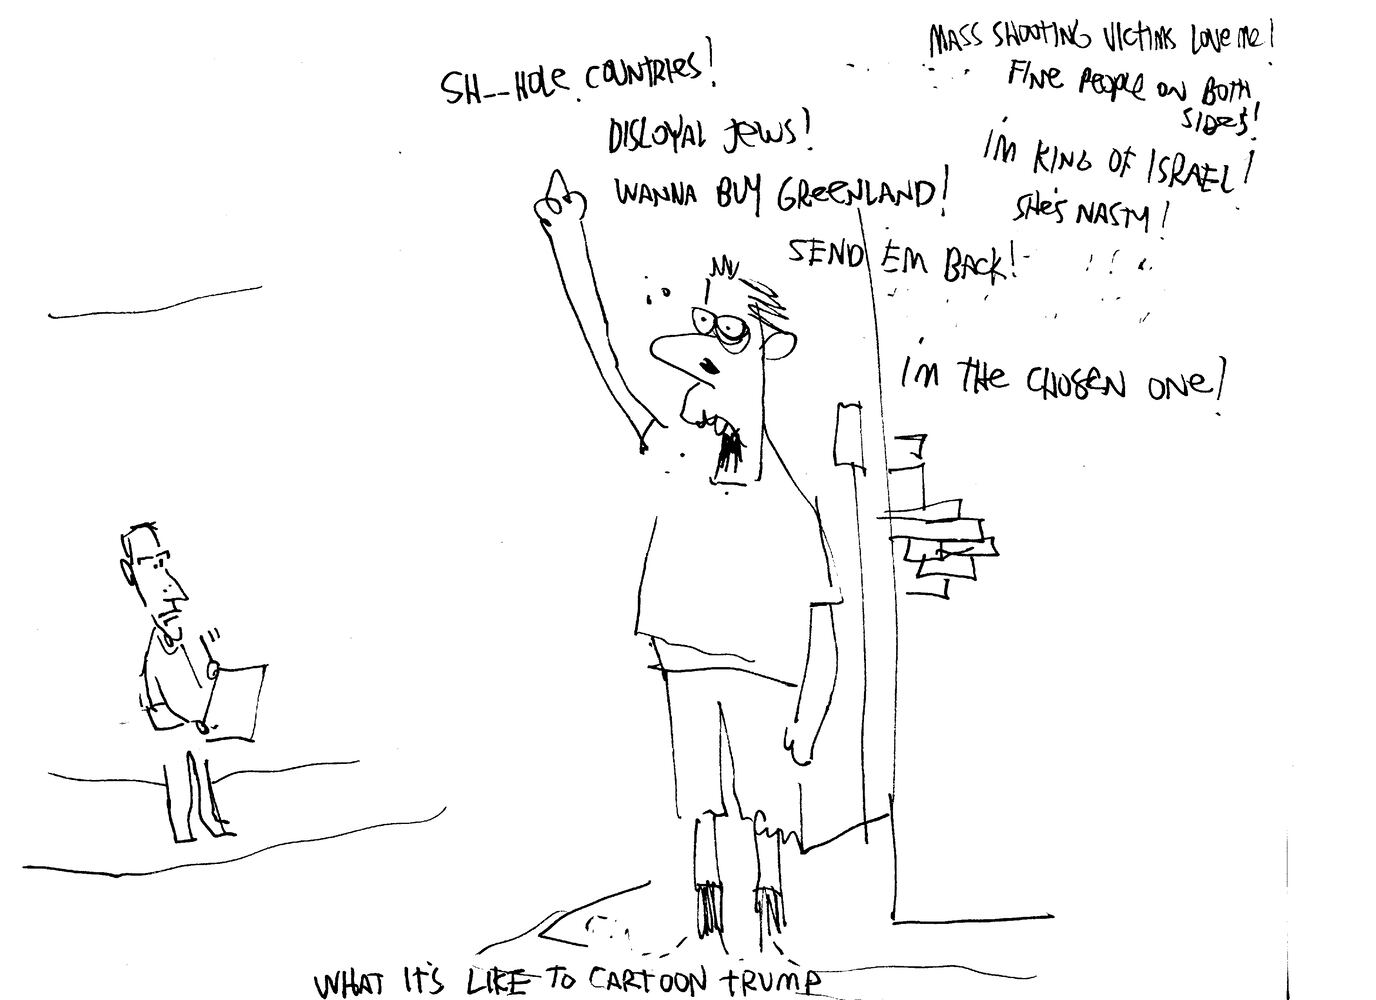 MASS SHOOTING VICTIMS LOVE ME!
FINE PEOPLE ON BOTH
SIDES!
SH__HOLE COUNTRIES!
DISLOYAL JEWS!
I'M KING OF ISRAEL!
WANNA BUY GREENLAND!
SHE'S NASTY!
SEND EM BACK!
I'M THE CHOSEN ONE!
WHAT IT'S LIKE TO CARTOON TRUMP